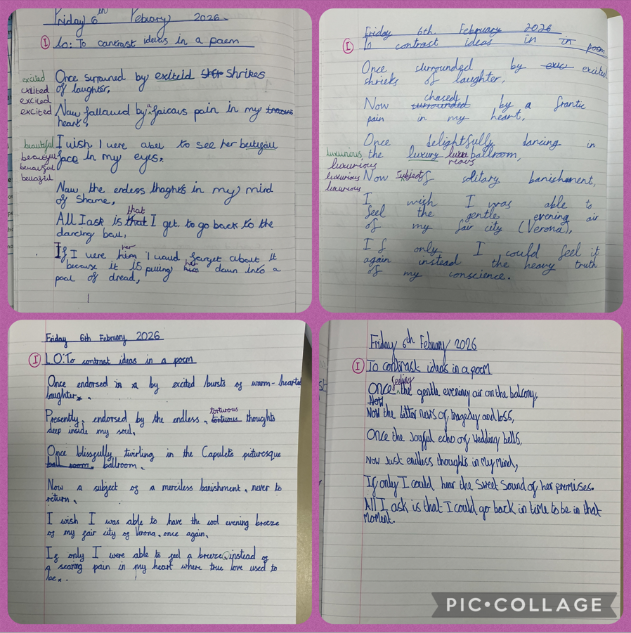 Friday 6th Febuary 2026
I Lc: To contrast ideas in a poem
excited
exited
excited
excited
Once surround by exiteld shrikes
of laughter,
Now followed by pain in my
heart,
beautiful
beauyful
beautiful
I wish I were abel to see her
face in my eyes.
Now the endess thoghts in my mind
of shame,
All I ask is that I get to go back to the
dancing ball,
that
If I were him I woud forget about it
her
because it is pulling him down into a
pool of dread,
Friday 6th February 2026
I To contrast ideas in a poem
Once surrounded by excited
shrieks of laughter,
Now surrounded by a frantic
chased
pain in my heart,
Once delightfully dancing in
the luxury ballroom,
luxurious
luxurious
luxurious
Now of solitary banishment,
I wish I was able to
feel the gentle evening air
of my fair city (Verona),
If only I could feel it
again instead the heavy truth
of my conscience.
Friday 6th February 2026
I LO: To contrast ideas in a poem
Once endorsed in by excited bursts of warm-hearted
laughter,
Presently, endorsed by the endless, torturous thoughts
deep inside my soul,
Once blissfully twirling in the Capulets picturesque
ball room ballroom,
Now a subject of a merciless banishment, never to
return,
I wish I was able to have the cool evening breeze
of my fair city of Verona, once again,
If only I were able to feel a breeze, instead of
a searing pain in my heart where true love used to
be.
Friday 6th Febuary 2026
I To contrask ideas in a poem
Once the gentle evening air on the balcony,
Now
Now the bitter news of tragedy and loss,
Once the Joyful echo of wedding bells,
Now Just endless thoughts in My Mind,
If only I could hear the Sweet Sound of her promises
All I ask is that I could go back in time to be in that
Moment.
PIC•COLLAGE